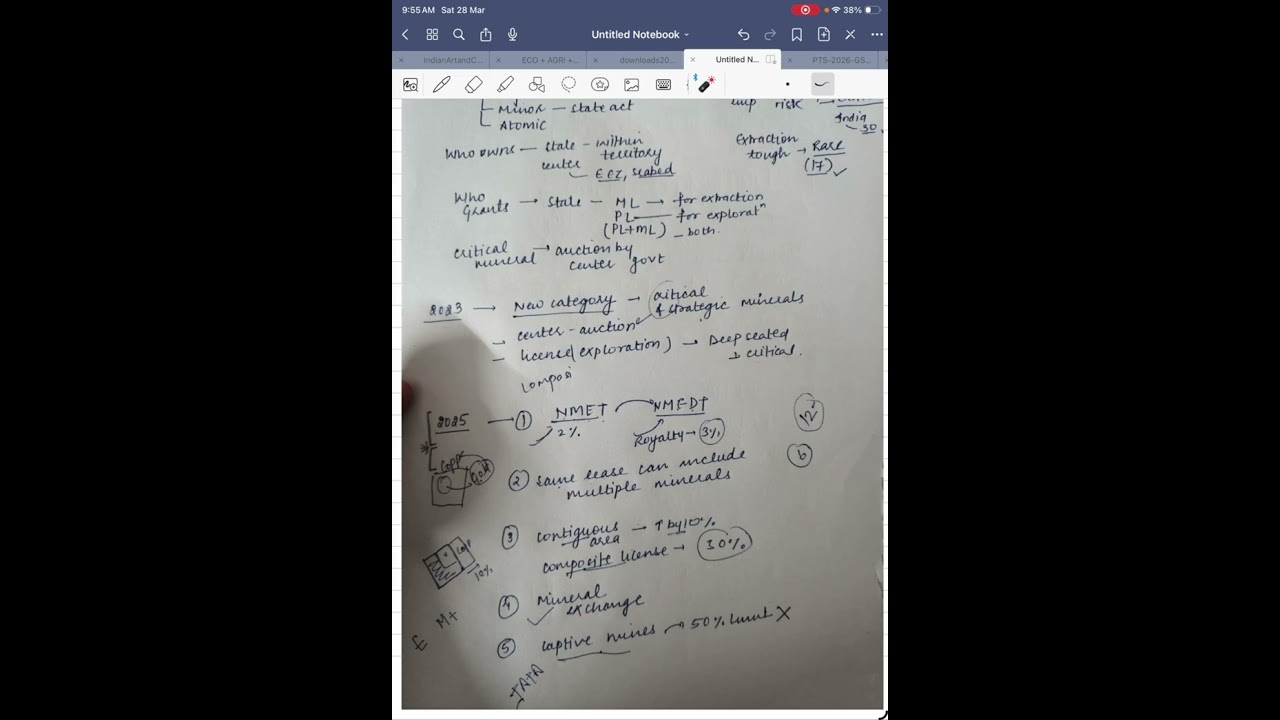 9:55 AM Sat 28 Mar
38%
Untitled Notebook
IndianArtandC...
ECO + AGRI +...
downloads20...
Untitled N...
PTS-2026-GS...
Minor — state act
Atomic
imp risk →
India
30
Who owns — state – within territory
center
EEZ, seabed
Extraction tough → Rare
(17)
Who Grants → state – ML → for extraction
PL — for exploratⁿ
(PL+ML) – both.
critical mineral → auction by center govt
2023 → New category → critical & strategic minerals
→ center – auction
– license (exploration) → Deep seated
→ critical.
Composi
2025 → ① NMET
NMEDT
2%
Royalty → 3%
12
6
Copper
Gold
② same lease can include multiple minerals
③ contiguous area → ↑ by 10%
composite license → 30%
Cop
10%
④ Mineral exchange
M+
E
⑤ captive mines → 50% limit X
TATA